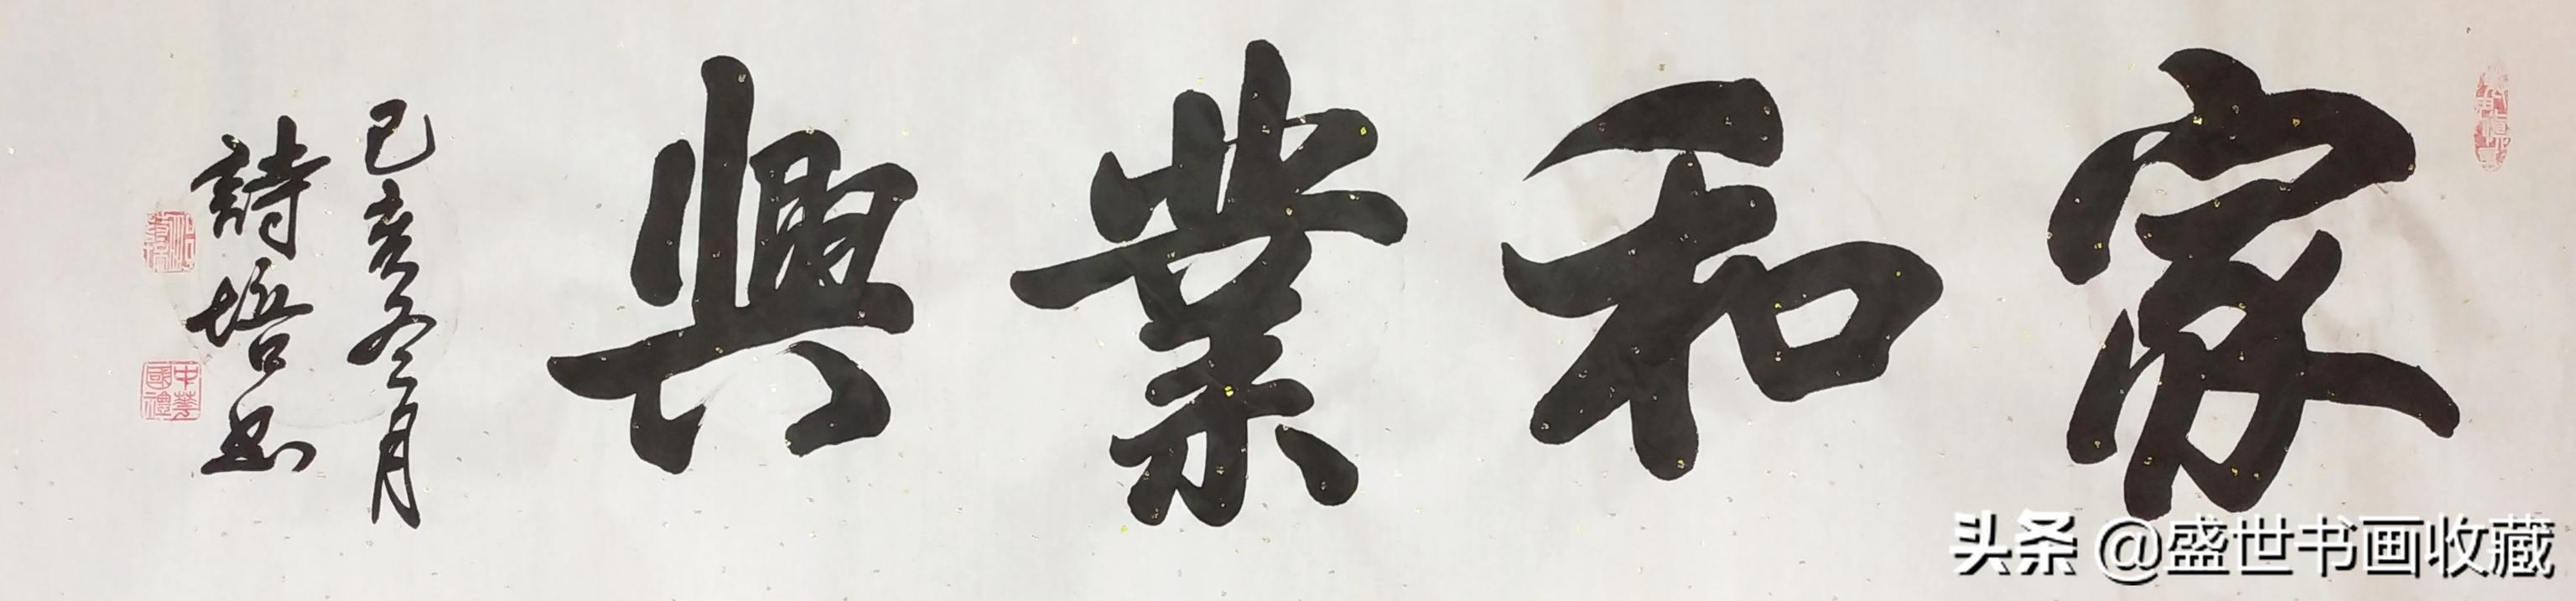 家和業興
己亥冬月
詩培書
中華國禮
头条 @盛世书画收藏